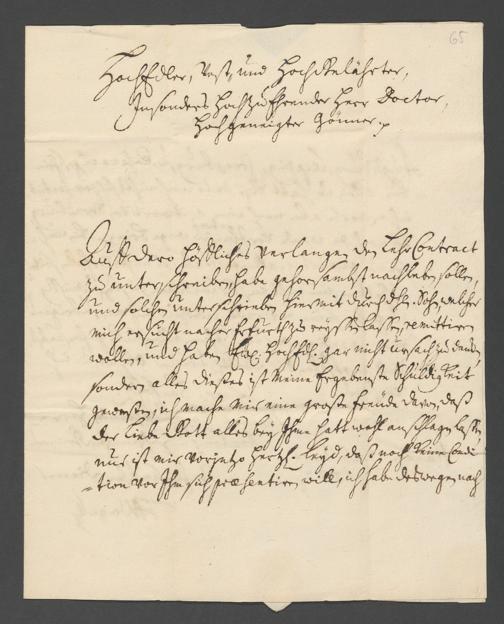 65
HochEdler, Vest und Hochgelahrter,
Insonders Hochzu Ehrender Herr Doctor,
Hochgeneigter Gönner.
Auff dero höffliches verlangen den Lehr Contract
zu unterschreiben, habe gehorsambst nachleben sollen,
und solchen unterschrieben hiermit durch
mich ersucht nacher Erfurth zu remittiren
wollen, und haben Ew. HochEdl. gar nicht ursach zu dancken,
sondern alles dieses ist meine Ergebenste Schuldigkeit
gewesen, ich mache mir eine große freude davon, daß
der liebe Gott alles bey Ihme hatt wohl anschlagen lassen,
nur ist mir vorjetzo hertzl. leyd, daß noch keine Condi-
-tion vor Ihm sich praesentiren will, ich habe deswegen nach